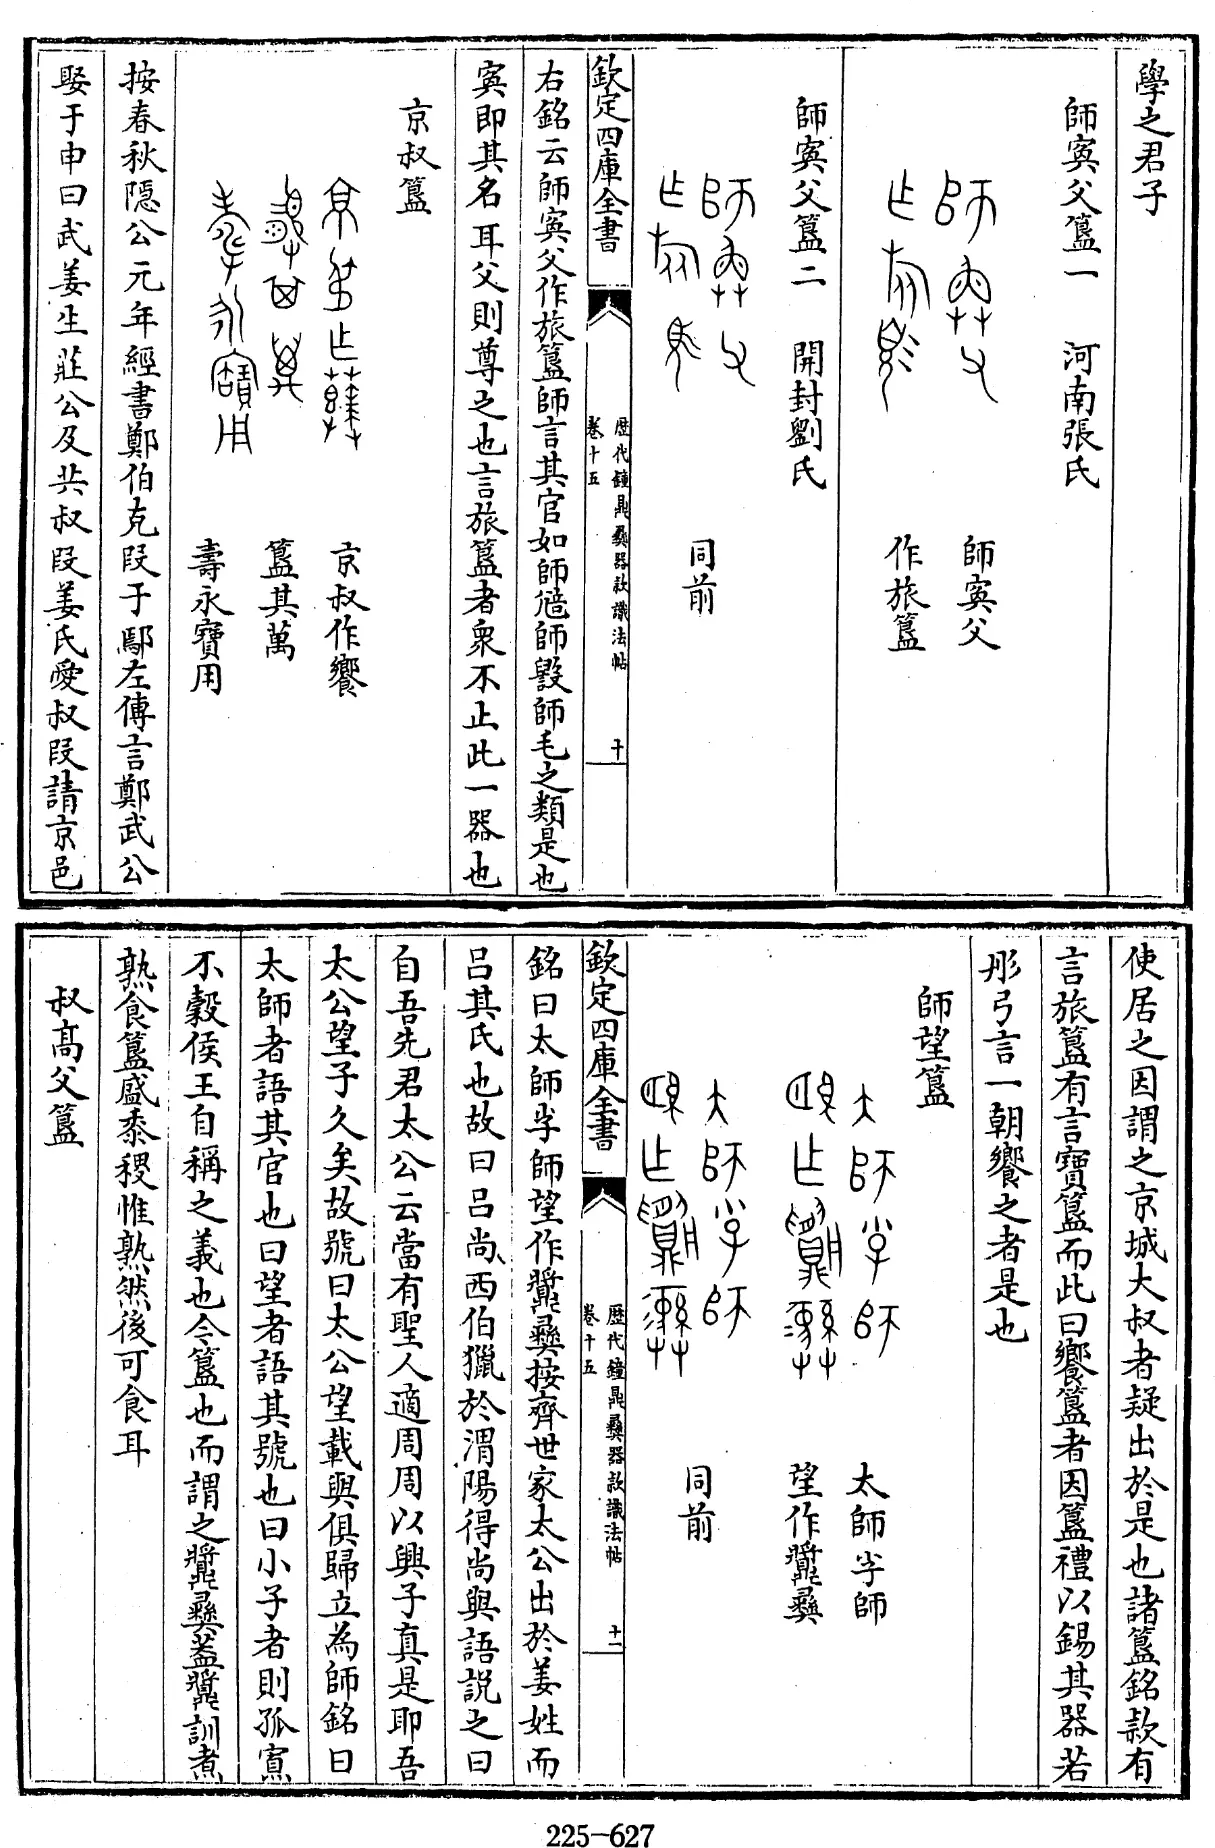 學之君子
師寏父簋一　河南張氏
師寏父
作旅簋
師寏父簋二　開封劉氏
同前
欽定四庫全書
歴代鐘鼎彝器款識法帖
卷十五
十
右銘云師寏父作旅簋師言其官如師㝨師毀師毛之類是也
寏即其名耳父則尊之也言旅簋者衆不止此一器也
京叔簋
京叔作饗
簋其萬
壽永寶用
按春秋隠公元年經書鄭伯克叚于鄢左傳言鄭武公
娶于申曰武姜生莊公及共叔叚姜氏愛叔叚請京邑
使居之因謂之京城大叔者疑出於是也諸簋銘款有
言旅簋有言寶簋而此曰饗簋者因簋禮以錫其器若
彤弓言一朝饗之者是也
師望簋
太師𡥉師
望作䵼彝
同前
欽定四庫全書
歴代鐘鼎彝器款識法帖
卷十五
十一
銘曰太師𡥉師望作䵼彝按齊世家太公出於姜姓而
吕其氏也故曰吕尚西伯獵於渭陽得尚與語説之曰
自吾先君太公云當有聖人適周周以興子真是耶吾
太公望子久矣故號曰太公望載與俱歸立為師銘曰
太師者語其官也曰望者語其號也曰小子者則孤寡
不穀侯王自稱之義也今簋也而謂之䵼彝葢䵼訓煮
熟食簋盛黍稷惟熟然後可食耳
叔高父簋
225-627